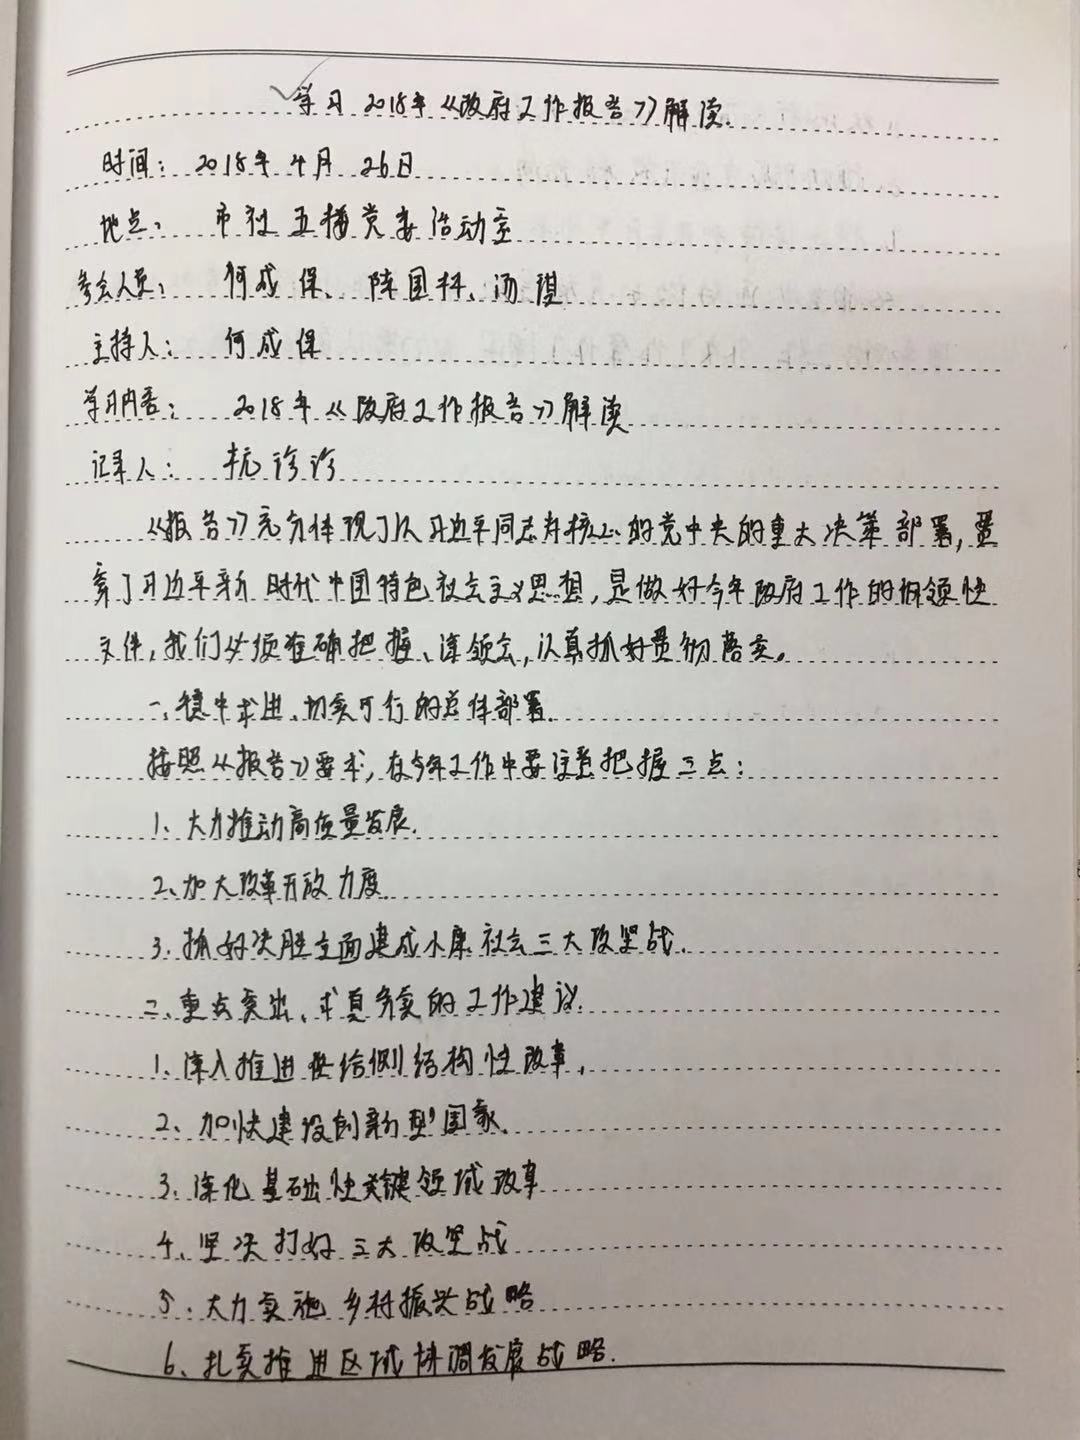 学习 2018年《政府工作报告》解读.
时间: 2018年4月26日
地点: 市社五楼党委活动室
参会人员: 何成保、陈国科、汤琪
主持人: 何成保
学习内容: 2018年《政府工作报告》解读
记录人: 杭诊诊
《报告》充分体现了以习近平同志为核心的党中央的重大决策部署,贯
穿了习近平新时代中国特色社会主义思想,是做好今年政府工作的纲领性
文件,我们必须准确把握、深领会,认真抓好贯彻落实。
一、稳中求进、切实可行的总体部署.
按照《报告》要求,在今年工作中要注意把握三点:
1、大力推动高质量发展.
2、加大改革开放力度.
3、抓好决胜全面建成小康社会三大攻坚战.
二、重点突出、求真务实的工作建议.
1、深入推进供给侧结构性改革.
2、加快建设创新型国家.
3、深化基础性关键领域改革
4、坚决打好三大攻坚战
5、大力实施乡村振兴战略
6、扎实推进区域协调发展战略.